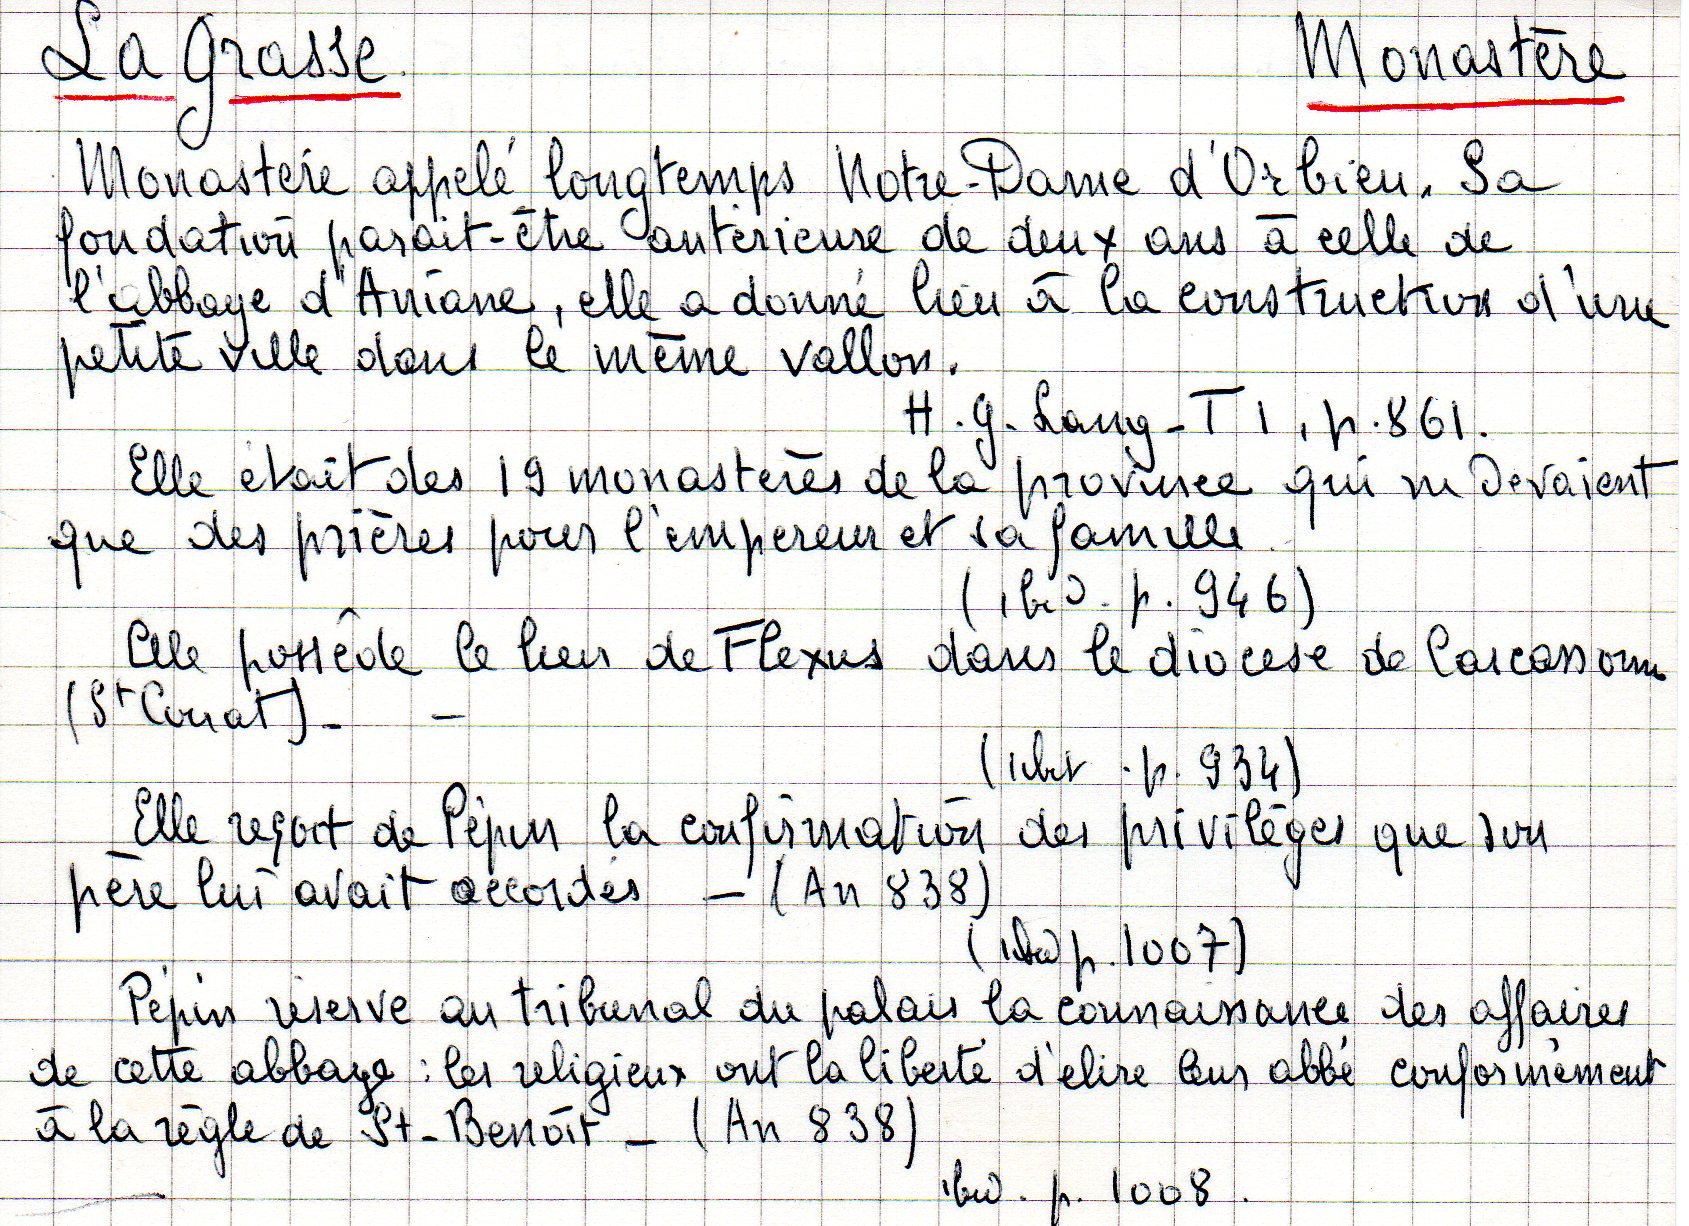 La Grasse Monastère
Monastère appelé longtemps Notre-Dame d'Orbieu. Sa
fondation parait-être antérieure de deux ans à celle de
l'abbaye d'Aniane, elle a donné lieu à la construction d'une
petite ville dans le même vallon.
H. G. Lang - T 1, p. 861.
Elle était des 19 monastères de la province qui ne devaient
que des prières pour l'empereur et sa famille
(ibid. p. 946)
Elle possède le lieu de Flexus dans le diocèse de Carcassonne
(St Couat) - -
(ibid . p. 934)
Elle reçoit de Pépin la confirmation des privilèges que son
père lui avait accordés - (An 838)
(ibid p. 1007)
Pépin réserve au tribunal du palais la connaissance des affaires
de cette abbaye : les religieux ont la liberté d'élire leur abbé conformément
à la règle de St-Benoît - (An 838)
ibid. p. 1008.